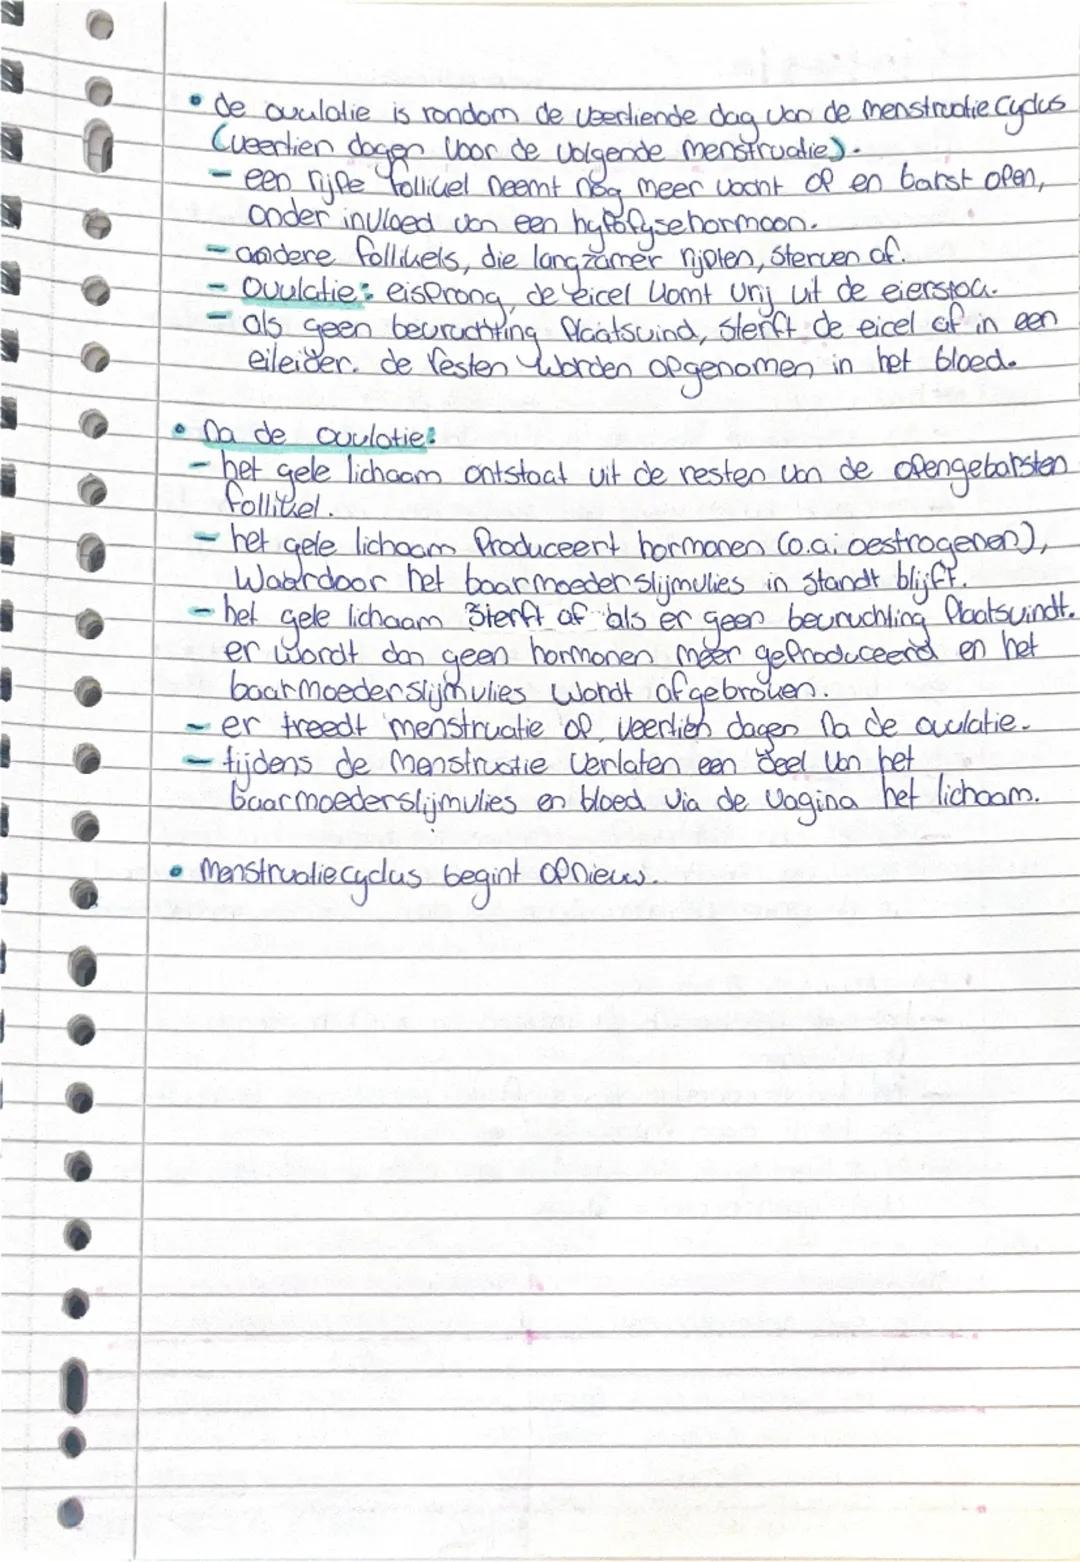 • de ovulatie is rondom de veertiende dag van de menstruatie cyclus
(veertien dagen voor de volgende menstruatie).
- een rijpe follikel neemt nog meer vocht op en barst open,
onder invloed van een hypofysehormoon.
- andere follikels, die langzamer rijpten, sterven af.
- Ovulatie: eisprong, de eicel komt vrij uit de eierstok.
- als geen bevruchting plaatsvind, sterft de eicel af in een
eileider. de resten worden opgenomen in het bloed.
• Na de ovulatie:
- het gele lichaam ontstaat uit de resten van de opengebarsten
follikel.
- het gele lichaam produceert hormonen (o.a. oestrogenen),
waardoor het baarmoederslijmvlies in standt blijft.
- het gele lichaam sterft af als er geen bevruchting plaatsvindt.
er wordt dan geen hormonen meer geproduceerd en het
baarmoederslijmvlies wordt afgebroken.
- er treedt menstruatie op, veertien dagen na de ovulatie.
- tijdens de menstructie verlaten een deel van het
baarmoederslijmvlies en bloed via de vagina het lichaam.
• Menstruatiecyclus begint opnieuw.